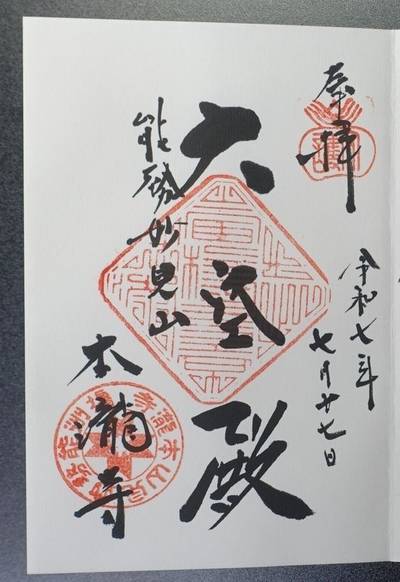 奉拝
令和七年
七月廿七日
大空殿
能勢妙見山
本瀧寺